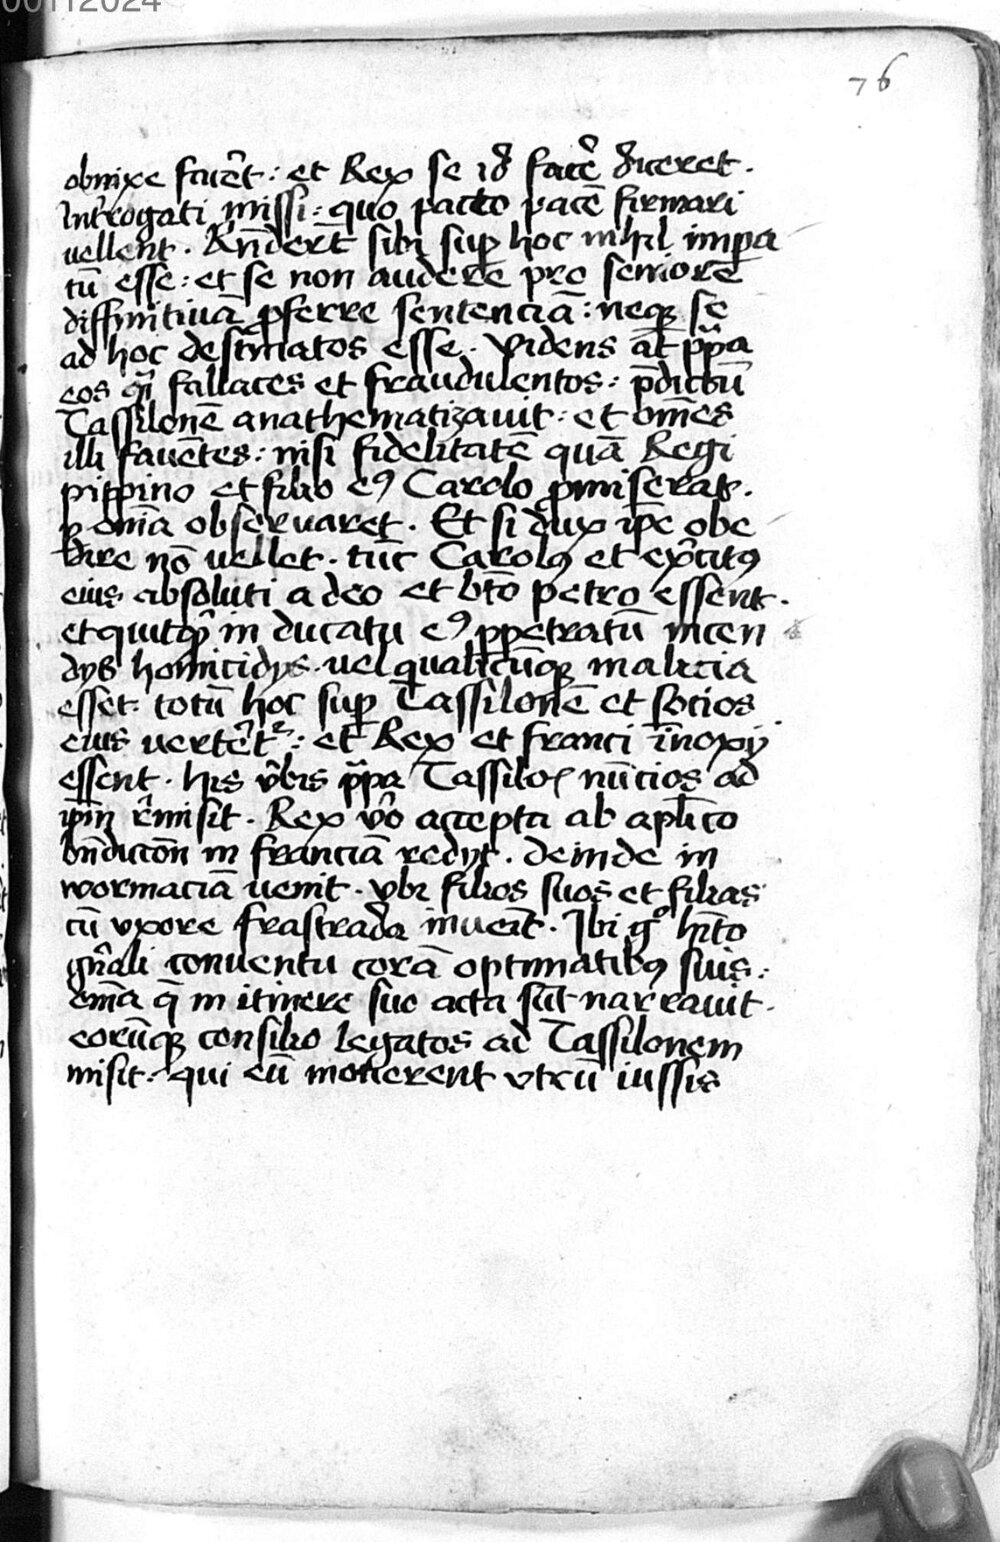 00112024
76
obnixe favēt : et Rex se id facē diceret .
Introgati missi : quo pacto pacē firmari
vellent . Rn̄dert̄ sibi sup hoc nihil impa
tū esse : et se non audere pre seniore
diffinitiuā pferre sentenciā : neqꝫ se
ad hoc destinatos esse . Videns aūt ppa
eos qͥ fallaces et fraudulentos : p̄dictū
Tassilonē anathematizauit : et om̄es
illi fauētes : nisi fidelitatē quā Regi
pippino et filio eꝰ Carolo pmiserat .
p om̄ia obseruaret . Et si dux ip̄e obe
dire nō vellet . tūc Carolꝰ et exͬcitꝰ
eius absoluti a deo et bt̄o petro essent .
et quitqͥd in ducatu eꝰ ppetratū incen
dijs homicidijs . uel qualicūqꝫ malicia
esset . totū hoc sup Tassilonē et socios
eius verteͬt : et Rex et franci īnoxij
essent . his v̄bis pp̄a Tassiloī nūcios ad
ip̄m rͤmisit . Rex v̄o accepta ab apl̄ico
bn̄dictōn in franciā redijt . deinde in
wormaciā uenit . vbi filios suos et filias
cū vxore frastrada inuēit . Ibi gͦ hīto
gn̄ali conuentu corā optimatibꝰ suis :
om̄ia q̄ in itinere suo acta sūt narrauit .
eorūqꝫ consilio legatos ad Tassilonem
misit : qui eū monerent vt cū iussis